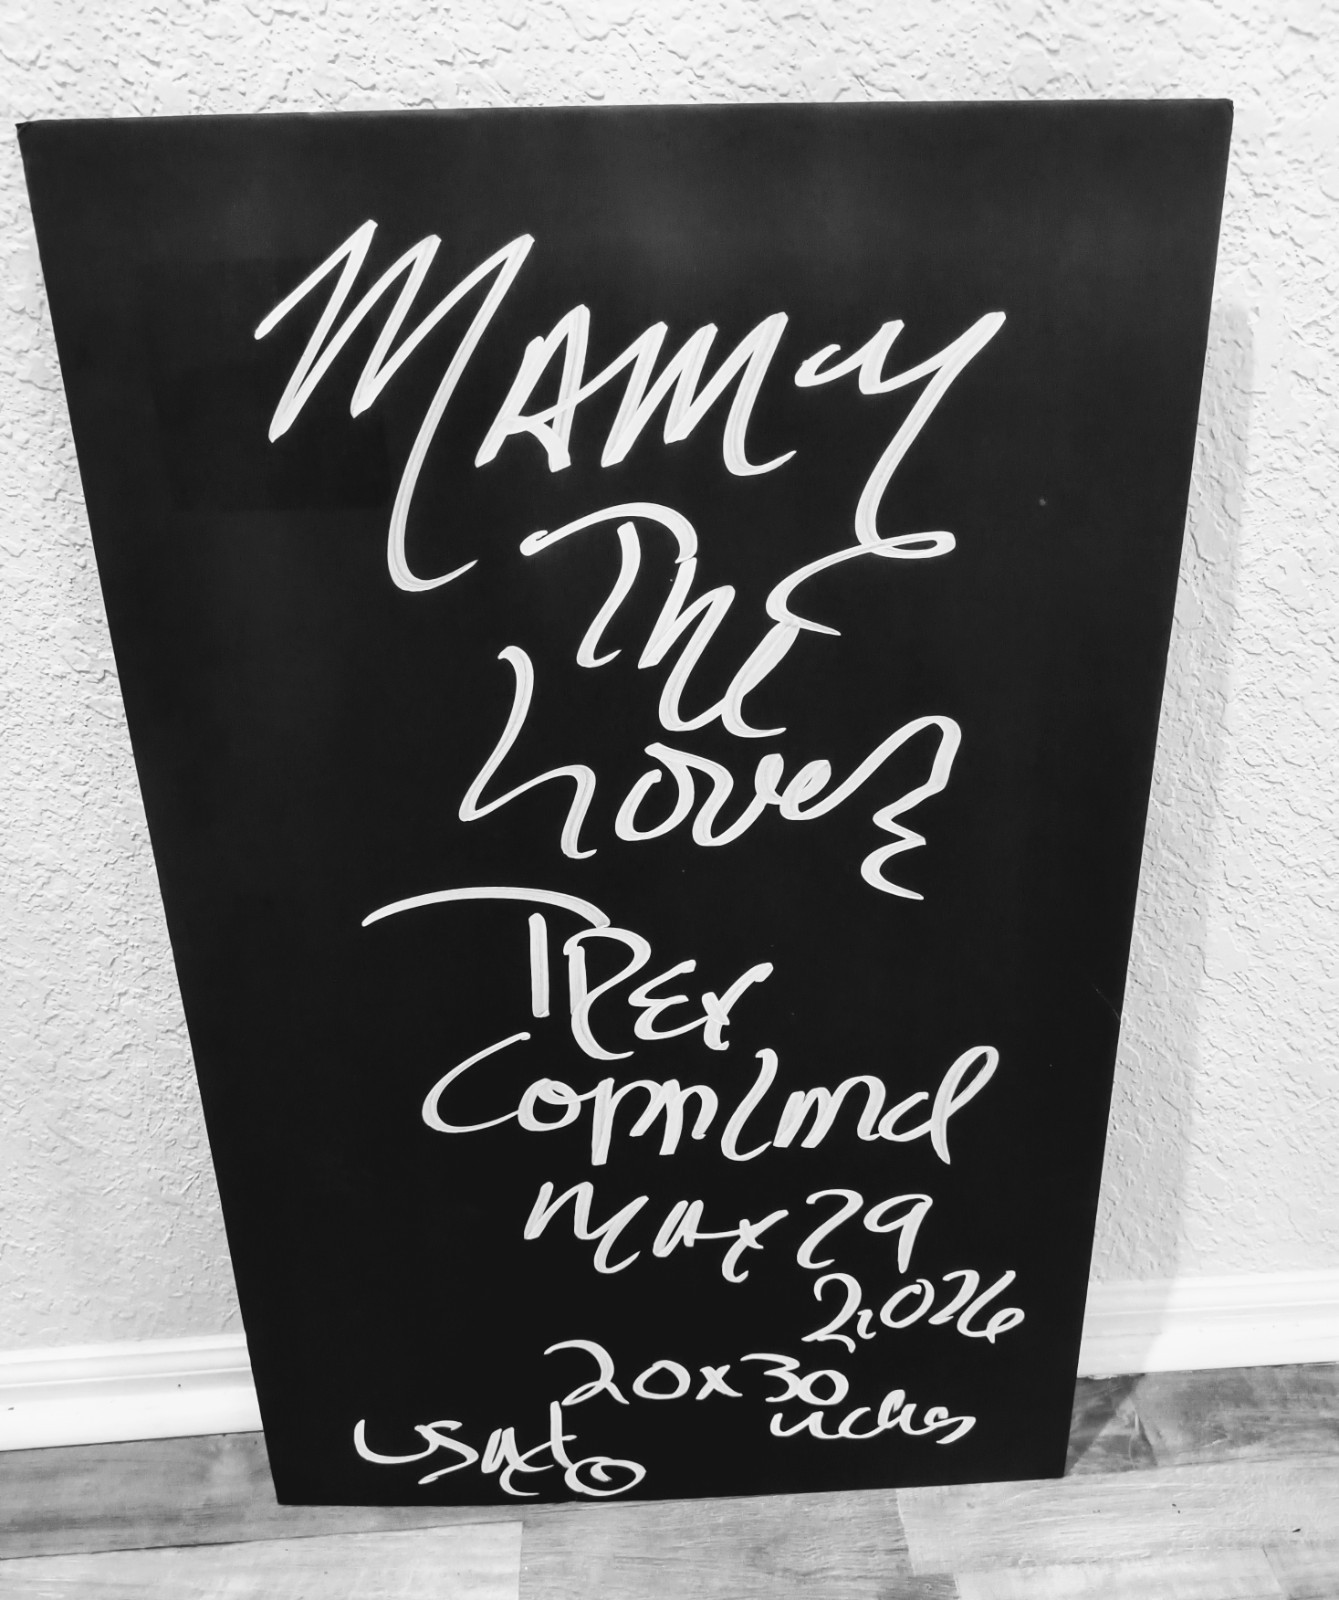 MAMY
The
Lover
TRex
Copmlmd
May 29
2,026
20x30
inches